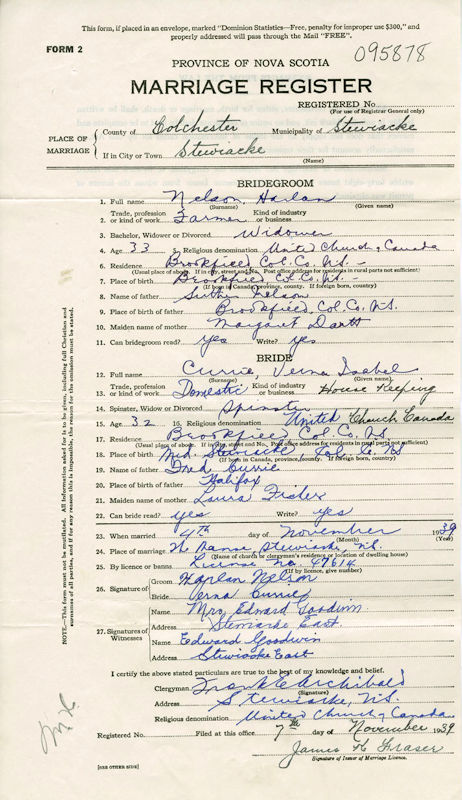 This form, if placed in an envelope, marked "Dominion Statistics—Free, penalty for improper use $300," and
properly addressed will pass through the Mail "FREE".
FORM 2
095878
PROVINCE OF NOVA SCOTIA
MARRIAGE REGISTER
REGISTERED No.
(For use of Registrar General only)
PLACE OF MARRIAGE
County of Colchester Municipality of Stewiacke
If in City or Town Stewiacke
(Name)
BRIDEGROOM
1. Full name Nelson, Harlan
(Surname) (Given name)
2. Trade, profession or kind of work Farmer Kind of industry or business
3. Bachelor, Widower or Divorced Widower
4. Age 33 5. Religious denomination United Church of Canada
6. Residence Brookfield Col. Co. N.S.
(Usual place of abode. If in city, street and No. Post office address for residents in rural parts not sufficient)
7. Place of birth Brookfield, Col. Co. N.S.
(If born in Canada, province, county. If foreign born, country)
8. Name of father Nelson
9. Place of birth of father Brookfield, Col. Co. N.S.
10. Maiden name of mother Margaret
11. Can bridegroom read? yes Write? yes
BRIDE
12. Full name Currie, Verna Isabel
(Surname) (Given name)
13. Trade, profession or kind of work Domestic Kind of industry or business House Keeping
14. Spinster, Widow or Divorced Spinster
15. Age 32 16. Religious denomination United Church Canada
17. Residence Brookfield Col Co. N.S.
(Usual place of abode. If in city, street and No. Post office address for residents in rural parts not sufficient)
18. Place of birth Mid. Stewiacke, Col. Co. N.S.
(If born in Canada, province, county. If foreign born, country)
19. Name of father Fred Currie
20. Place of birth of father Halifax
21. Maiden name of mother Laura Fisher
22. Can bride read? yes Write? yes
23. When married 4th day of November 1939
(Month) (Year)
24. Place of marriage The Manse, Stewiacke, N.S.
(Name of church or clergyman's residence or location of dwelling house)
25. By licence or banns License No. 47614
(If by licence, give number)
26. Signature of Groom Harlan Nelson
Bride Verna Currie
27. Signatures of Witnesses
Name Mrs Edward Goodwin
Address Stewiacke East.
Name Edward Goodwin
Address Stewiacke East
I certify the above stated particulars are true to the best of my knowledge and belief.
Clergyman Frank E Archibald
(Signature)
Address Stewiacke, N.S.
Religious denomination United Church of Canada
Registered No. Filed at this office 7th day of November 1939
James Fraser
Signature of Issuer of Marriage Licence.
[SEE OTHER SIDE]
NOTE.—This form must not be mutilated. All information asked for is to be given, including full Christian and
surnames of all parties, and if for any reason this is impossible, the reason for the omission must be stated.